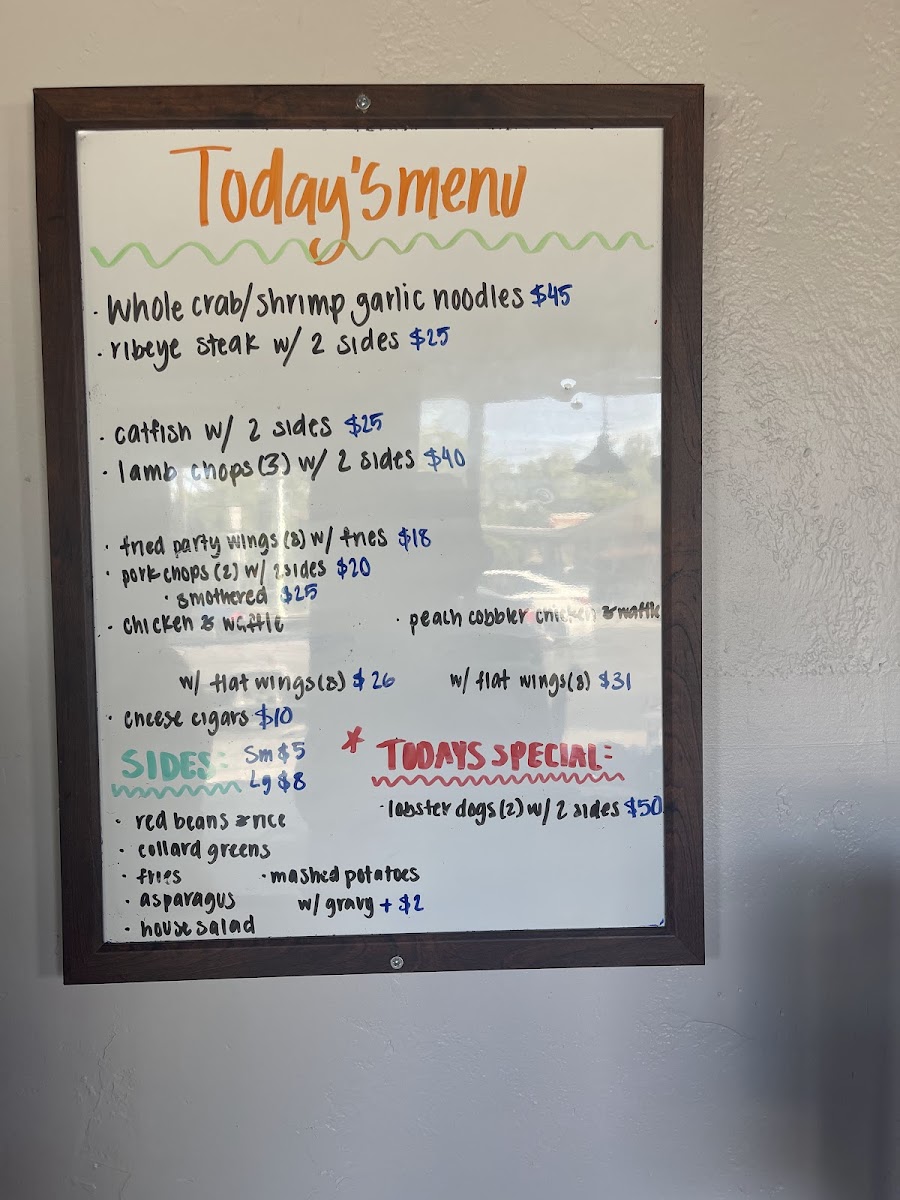 Today's menu
· Whole crab/shrimp garlic noodles $45
· ribeye steak w/ 2 sides $25
· catfish w/ 2 sides $25
· lamb chops (3) w/ 2 sides $40
· fried party wings (8) w/ fries $18
· pork chops (2) w/ 2 sides $20
· smothered $25
· chicken & waffle
· peach cobbler chicken & waffle
w/ flat wings (8) $26
w/ flat wings (8) $31
· cheese cigars $10
SIDES: Sm $5
Lg $8
* TODAYS SPECIAL:
· lobster dogs (2) w/ 2 sides $50
· red beans & rice
· collard greens
· fries
· mashed potatoes
· asparagus
w/ gravy + $2
· house salad